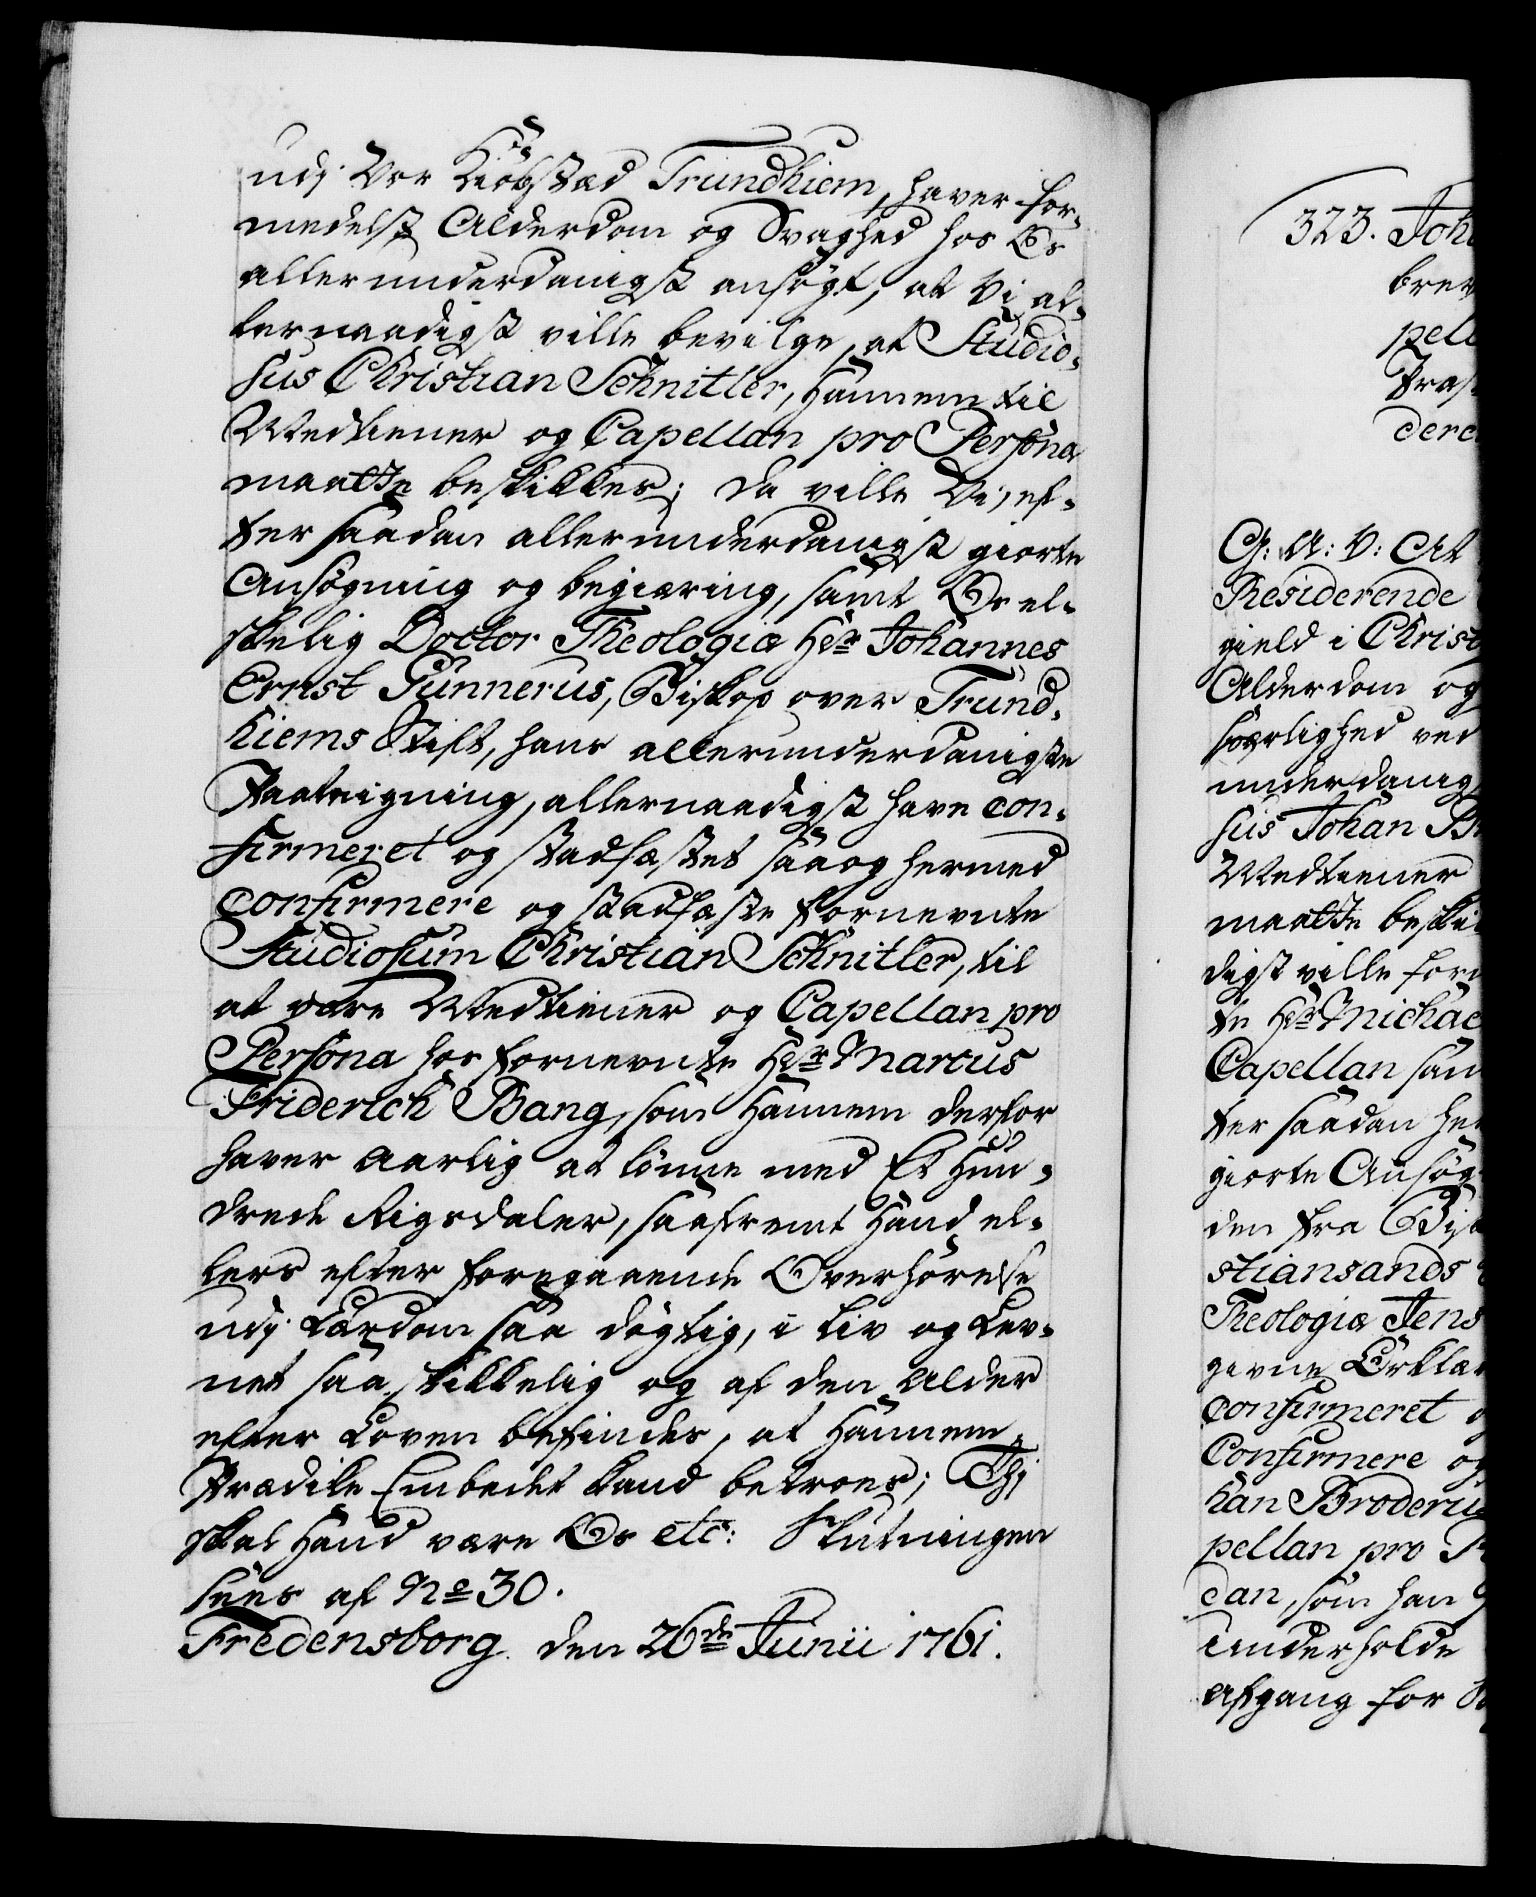 udj Vor Kiöbstæd Trundhiem, haver for-
medelst Alderdom og Svaghed hos Os
allerunderdanigst ansögt, at Vi al-
lernaadigst ville bevilge, at Studio-
sus Christian Schnitler, Hannem til
Medtiener og Capellan pro Persona
maatte beskikkes; Da ville Vi, ef-
ter saadan allerunderdanigst giorte
Ansøgning og begiæring, samt Os el-
skelig Doctor Theologiæ Hr Johannes
Ernst Gunnerus, Biskop over Trund-
hiems Stift, hans allerunderdanigste
Paategning, allernaadigst have con-
firmeret og stadfæstet saa og hermed
confirmere og stadfæste fornevnte
Studiosum Christian Schnitler, til
at være Medtiener og Capellan pro
Persona hos fornevnte Hr Marcus
Friderich Bang, som Hannem derfor
haver aarlig at lönne med Et Hun-
drede Rigsdaler, saafremt Hand el-
lers efter foregaaende Overhörelse
udj Lærdom saa dögtig, i Liv og Lev-
net saa skikkelig og af den Alder
efter Loven befindes, at Hannem
Prædike Embedet kand betroes; Thj
skal Hand være Os etc: Slutningen
sees af No 30.
Fredensborg den 26de Junii 1761.
323. Joh
brev
pell
Præs
dere
C. A: V: At
Residerende
gield i Christ
Alderdom og
særlighed ved
underdanig
sus Johan Br
Medtiener
maatte beski
digst ville for
te Hr Michae
Capellan sam
ter saadan he
giorte Ansög
den fra Bis
stiansands
Theologiæ Jens
givne Erklæ
confirmeret o
Confirmere og
han Broderu
pellan pro P
dan, som han
underholde
afgang for